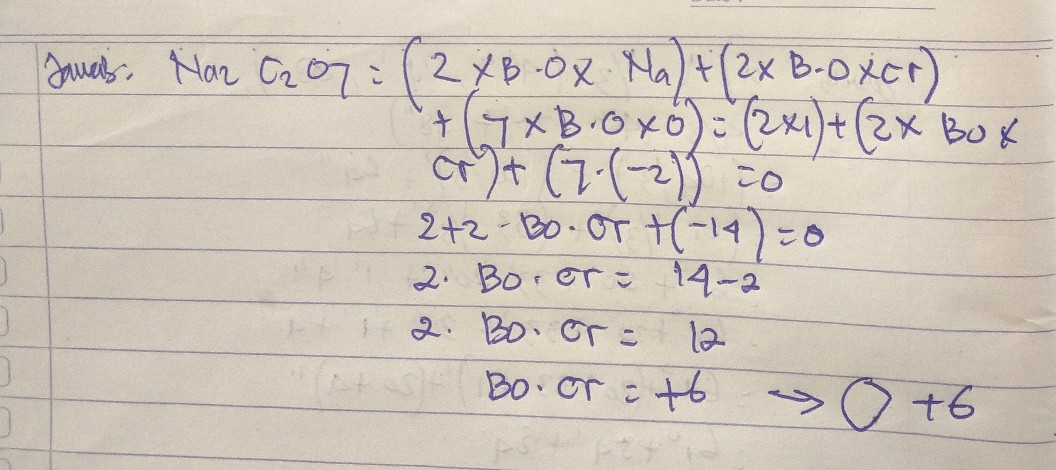 Jawab. Na2 C2O7 = (2 x B.O x Na) + (2 x B.O x Cr)
+ (7 x B.O x O) = (2x1) + (2 x BO x
Cr) + (7.(-2)) = 0
2+2 - Bo. Cr + (-14) = 0
2. Bo. Cr = 14-2
2. Bo. Cr = 12
Bo. Cr = +6 → O +6